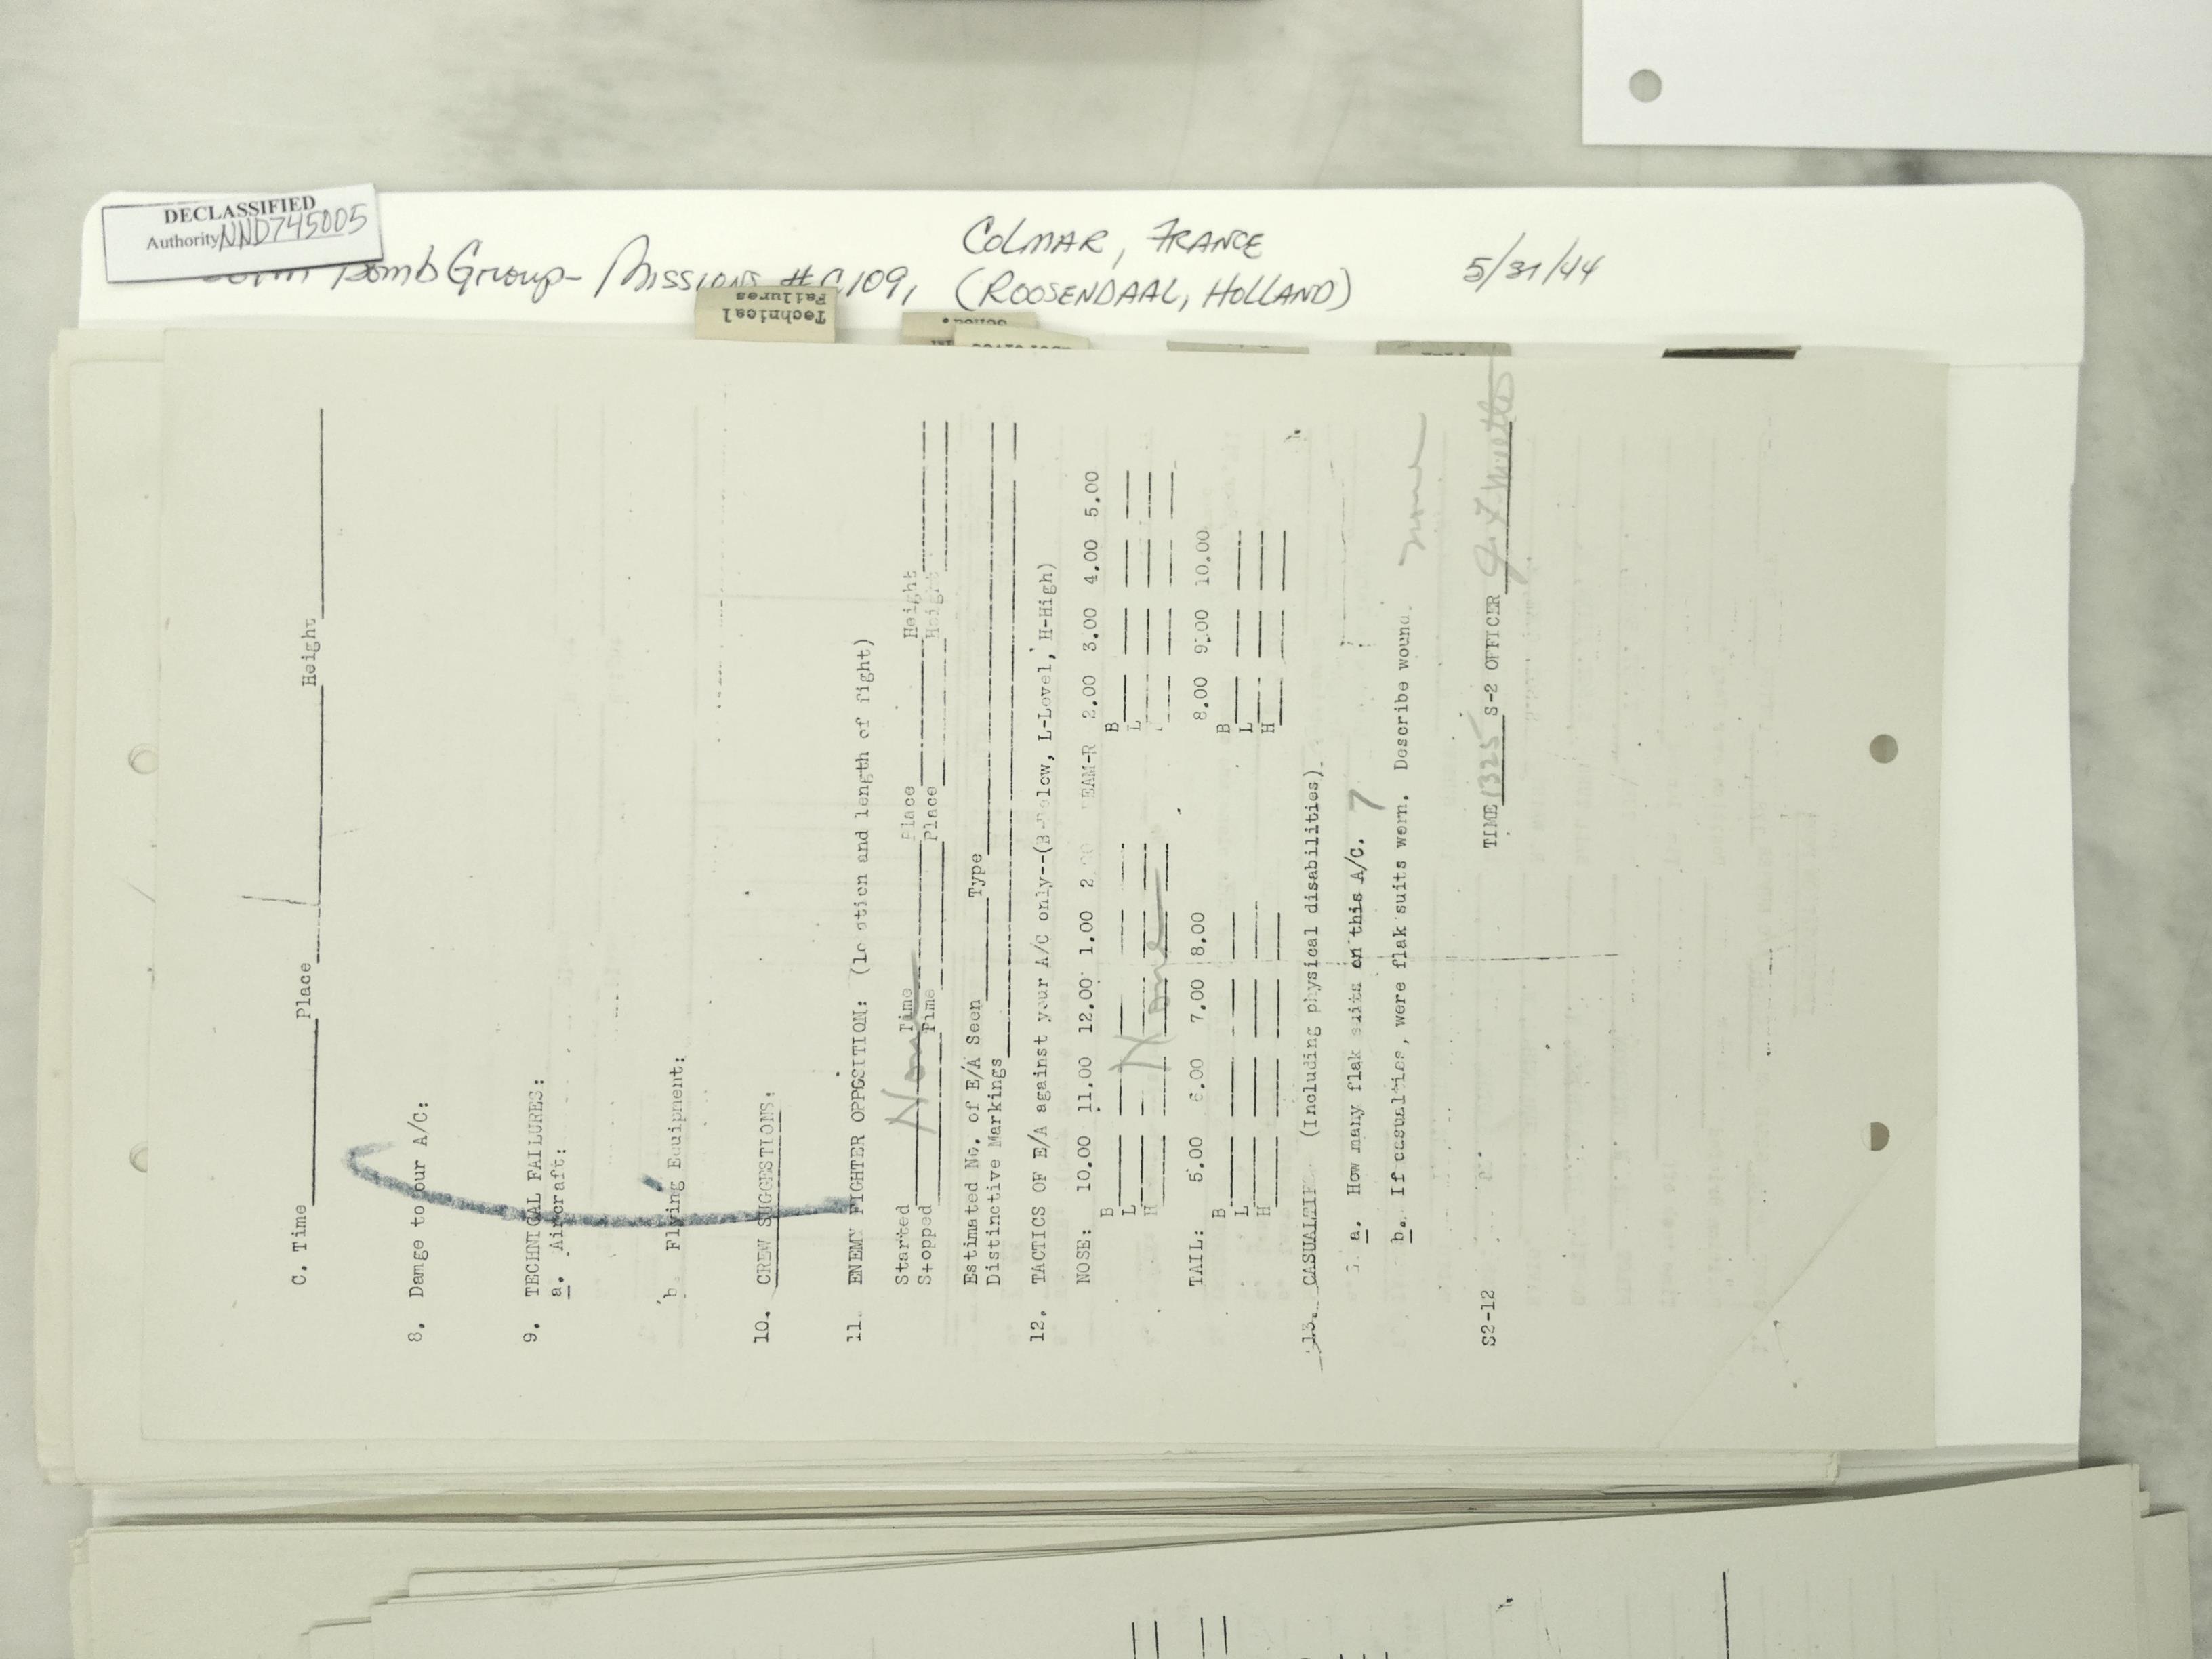 DECLASSIFIED
Authority NND745005
Bomb Group - Missions # 109,
COLMAR, FRANCE
(ROOSENDAAL, HOLLAND)
5/31/44
Technical
Failures
C. Time Place Height
8. Damage to our A/C:
9. TECHNICAL FAILURES:
a. Aircraft:
b. Flying Equipment:
10. CREW SUGGESTIONS:
11. ENEMY FIGHTER OPPOSITION: (location and length of fight)
Started None Time Place Height
Stopped Time Place Height
Estimated No. of E/A Seen Type
Distinctive Markings
12. TACTICS OF E/A against your A/C only--(B-Below, L-Level, H-High)
NOSE: 10.00 11.00 12.00 1.00 2.00 BEAM-R 2.00 3.00 4.00 5.00
B B
L L
H
None
TAIL: 5.00 6.00 7.00 8.00 8.00 9.00 10.00
B B
L L
H H
13. CASUALTIES (Including physical disabilities).
a. How many flak suits on this A/C. 7
b. If casualties, were flak suits worn. Describe wound. none
S2-12 TIME 1325 S-2 OFFICER